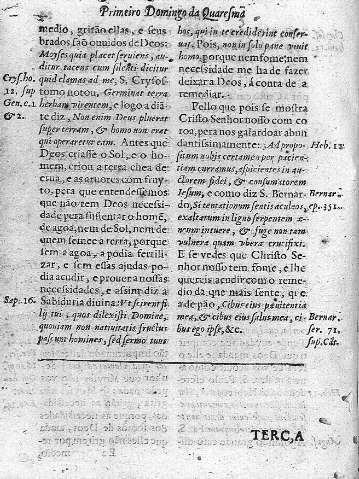 Primeiro Domingo da Quaresma
medio, gritão ellas, & seus
brados são ouuidos de Deos:
Moyses quia placet seruiens, au-
ditur, tacens cum silentio dicitur
quid clamas ad me, S. Crysos-
tomo notou, Germinet terra
herbam virentem, e logo a diã-
te diz, Non enim Deus pluerat
super terram, & homo non erat
qui operaretur eam. Antes que
Deos criasse o Sol, e o ho-
mem, criou a terra chea de
erua, e as aruores com fruy-
to, pera que entendessemos
que não tem Deos necessi-
dade pera sustentar o homē,
de agoa, nem de Sol, nem de
quem semee a terra, porque
sem agoa, a podia fertili-
zar, e sem essas ajudas po-
dia acudir, e prouer a nossas
necessidades, e assim diz a
Sabiduria diuina: Vt scirent fi-
lij tui, quos dilexisti Domine,
quoniam non natiuitatis fructus
pascunt homines, sed sermo tuus
Crysho.
12. sup
Gen. c. 1
& 2.
Sap. 16.
hos, qui in te crediderint conser-
uat. Pois, non in solo pane viuit
homo, porque nem fome, nem
necessidade me ha de fazer
deixar a Deus, à conta de a
remediar.
Pello que pois se mostra
Cristo Senhor nosso com co
roa, pera nos galardoar abun
dantissimamente: Ad propo-
situm nobis certamen per patien-
tiam curramus, aspicientes in au-
ctorem fidei, & consumatorem
Iesum, e como diz S. Bernar-
do, Si tentationum sentis aculeos,
exaltatum in ligno serpentem
intuere, & suge non tam
vulnera quam vbera crucifixi.
E se vedes que Christo Se-
nhor nosso tem fome, e lhe
quereis acudir com o reme-
dio da que mais sente, que
a de pão, Cibus eius pœnitentia
mea, & cibus eius salus mea, ci-
bus ego ipse, &c.
Heb. 12
Bernar.
ep. 351.
Bernar.
ser. 71.
sup. Cāt.
TERC,A